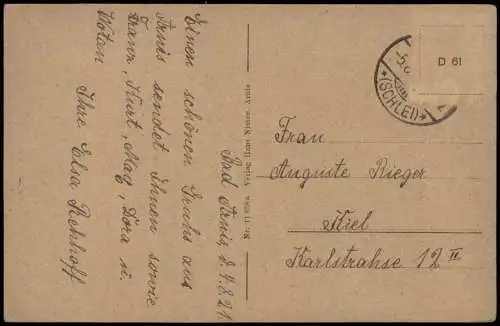 Bad Arnis d. 4.8.21.
Einen schönen Gruss aus
Arnis sendet Ihnen sowie
Franz, Kurt, Max, Dora u.
Wotan
Ihre Elsa Rehhoff
Verlag Hans Nissen, Arnis
D 61
* (SCHLEI) *
Frau
Auguste Rieger
Kiel
Karlstrahse 12 II